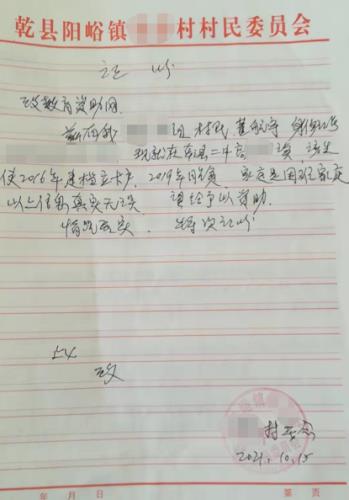 乾县阳峪镇 村村民委员会
证明
致教育资助网
兹有我 组村民 身份证号
现就读 县二中高
2016年建档立卡户,2019年脱贫 家庭是困难家庭
以上信息真实无误 请给予以资助.
情况属实 特次证明
此
致
村委会
2021.10.15
年 月 日 第 页